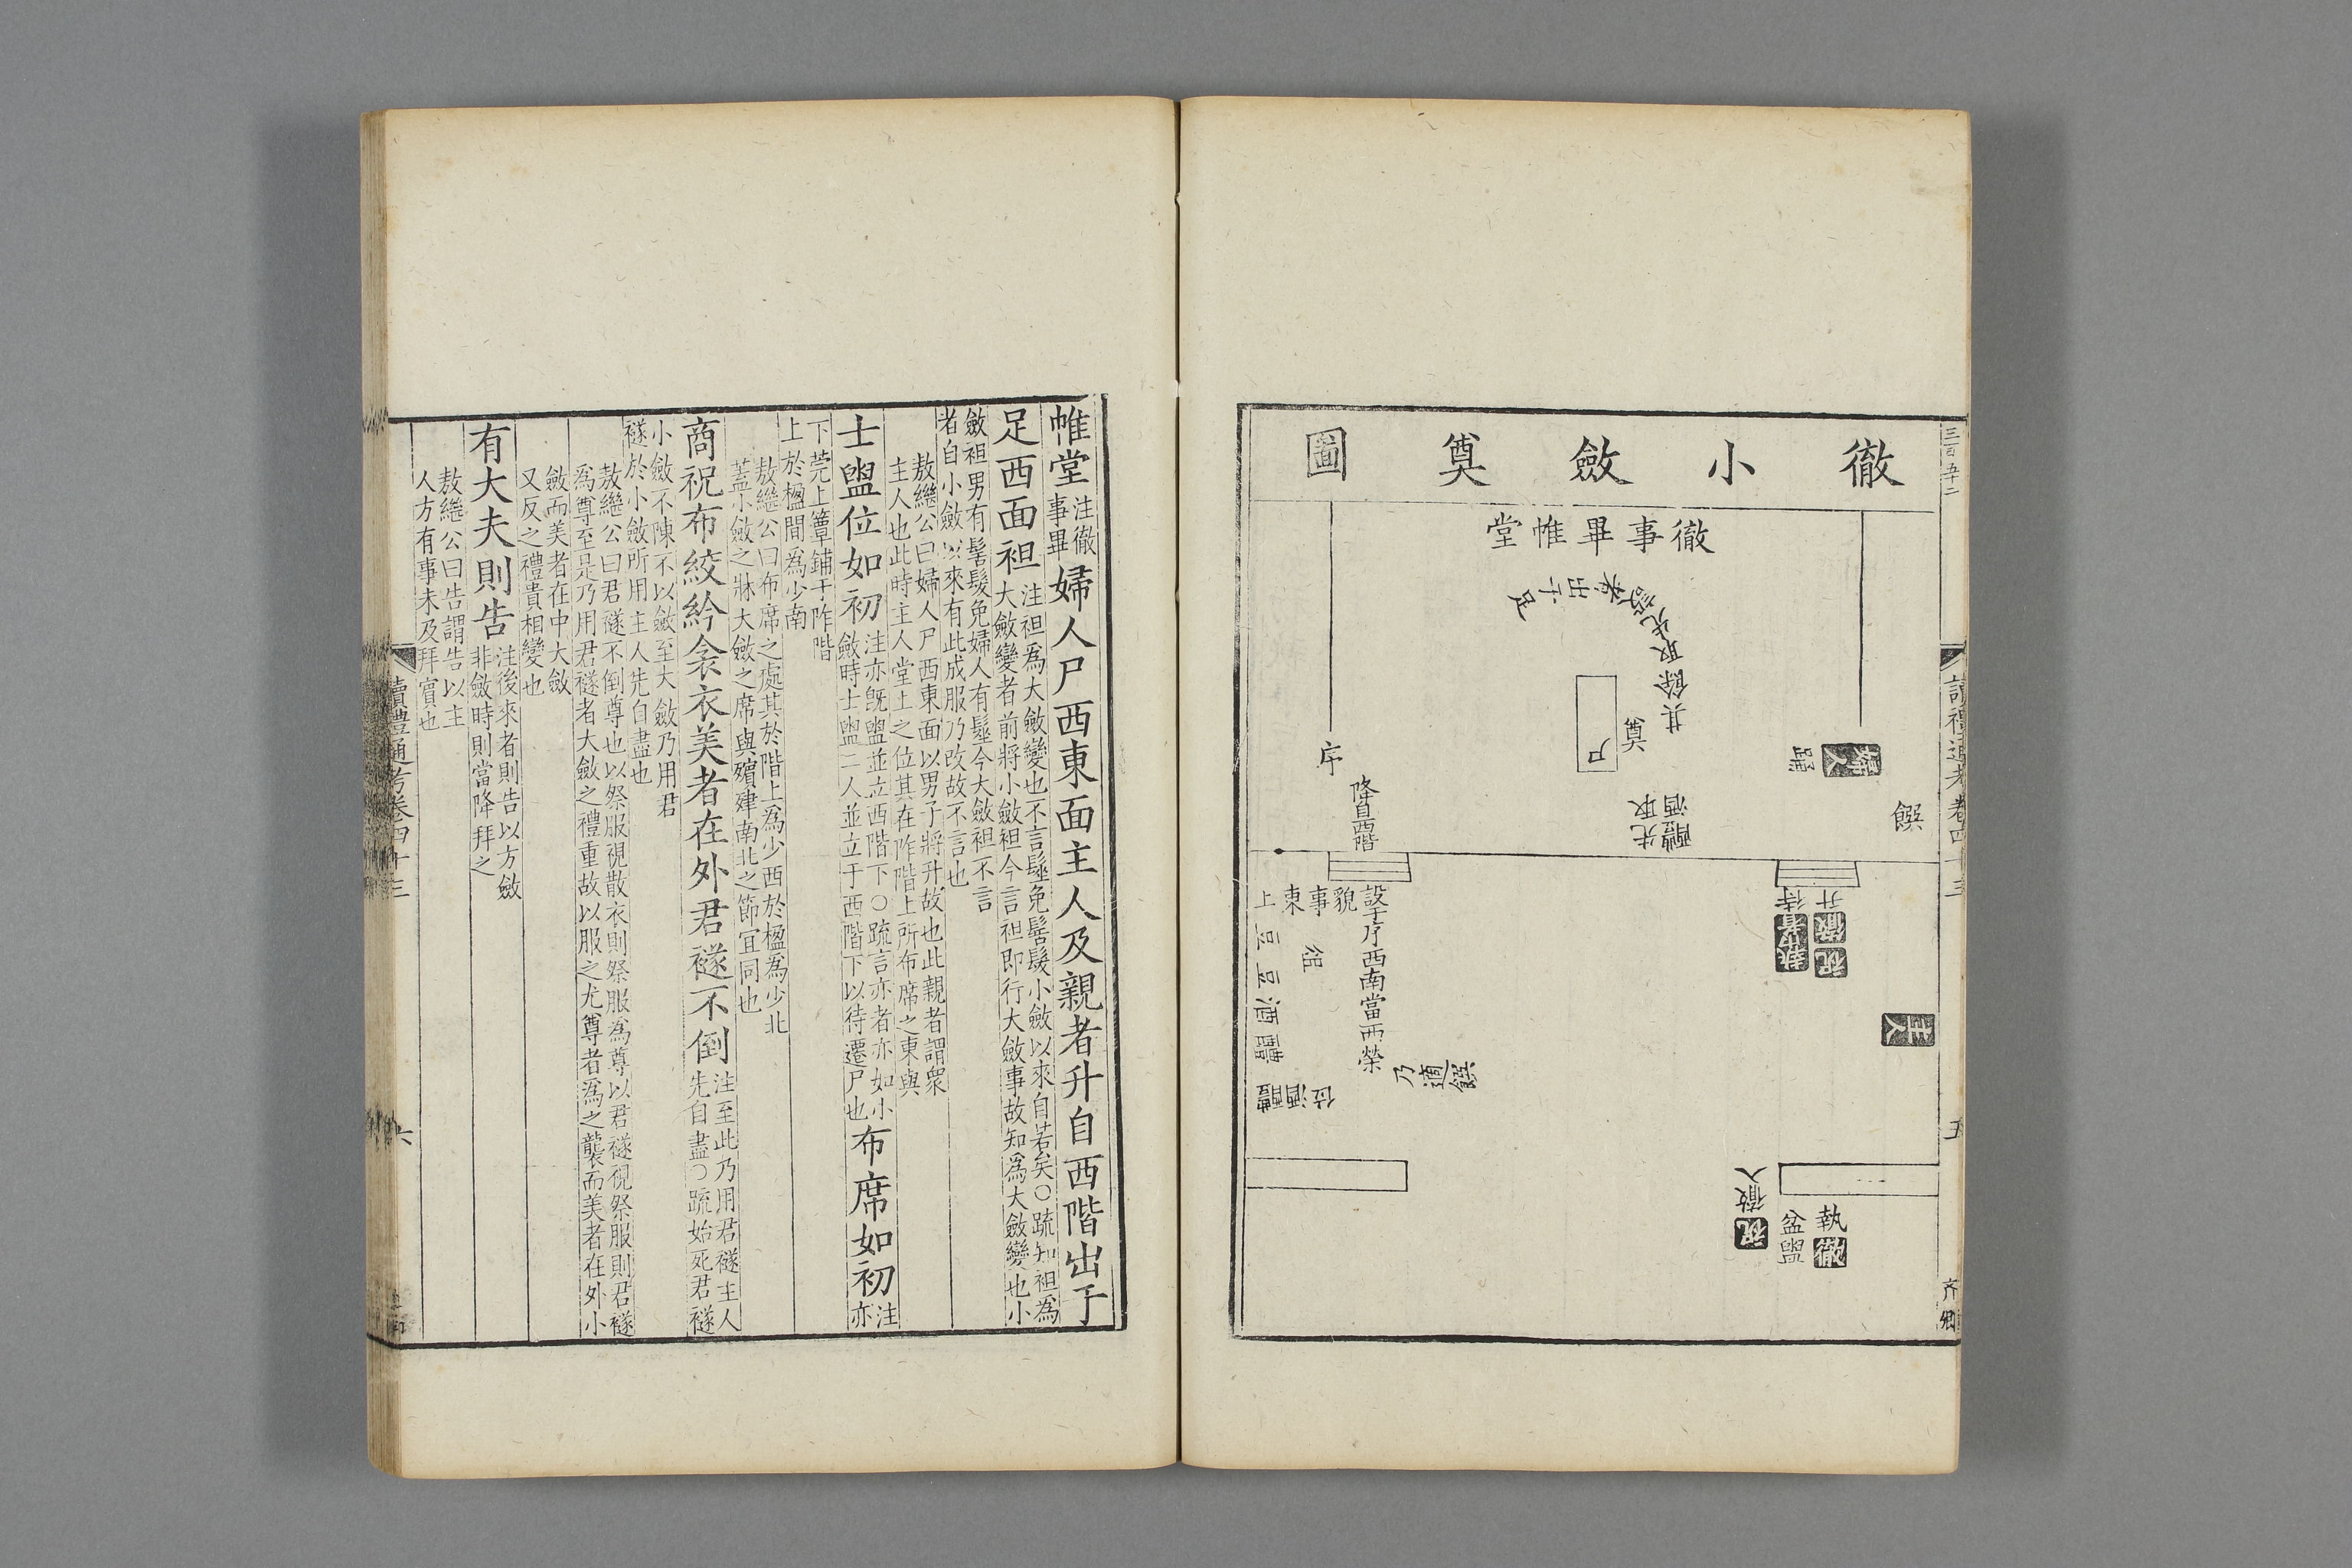 徹小斂奠圖
徹事畢帷堂
其餘取先設者出于足
奠
尸
序
降自西階
醴酒
先取
饌
設于序西南當西榮
豆
豆
俎
酒
醴
醴酒位
乃適饌
升
徹
祝
執事者待
主人
徹人
祝
執
盆盥
三百五十二
讀禮通考卷四十三
五
齐卿
帷堂注徹事畢婦人尸西東面主人及親者升自西階出于
足西面袒注袒爲大斂變也不言髽免髺髮小斂以來自若矣○疏知袒爲
大斂變者前將小斂袒今言袒即行大斂事故知爲大斂變也小
斂袒男有髺髮免婦人有髽今大斂袒不言
者自小斂以來有此成服乃改故不言也
敖繼公曰婦人尸西東面以男子將升故也此親者謂衆
主人也此時主人堂上之位其在阼階上所布席之東與
士盥位如初注亦旣盥並立西階下○疏言亦者亦如小
斂時士盥二人並立于西階下以待遷尸也布席如初注亦
下莞上簟鋪于阼階
上於楹間爲少南
敖繼公曰布席之處其於階上爲少西於楹爲少北
蓋小斂之牀大斂之席與殯肂南北之節宜同也
商祝布絞紟衾衣美者在外君襚不倒注至此乃用君襚主人
先自盡○疏始死君襚
小斂不陳不以斂至大斂乃用君
襚於小斂所用主人先自盡也
敖繼公曰君襚不倒尊也以祭服視散衣則祭服爲尊以君襚視祭服則君襚
爲尊至是乃用君襚者大斂之禮重故以服之尤尊者爲之襲而美者在外小
斂而美者在中大斂
又反之禮貴相變也
有大夫則告注後來者則告以方斂
非斂時則當降拜之
敖繼公曰告謂告以主
人方有事未及拜賓也
讀禮通考卷四十三
六